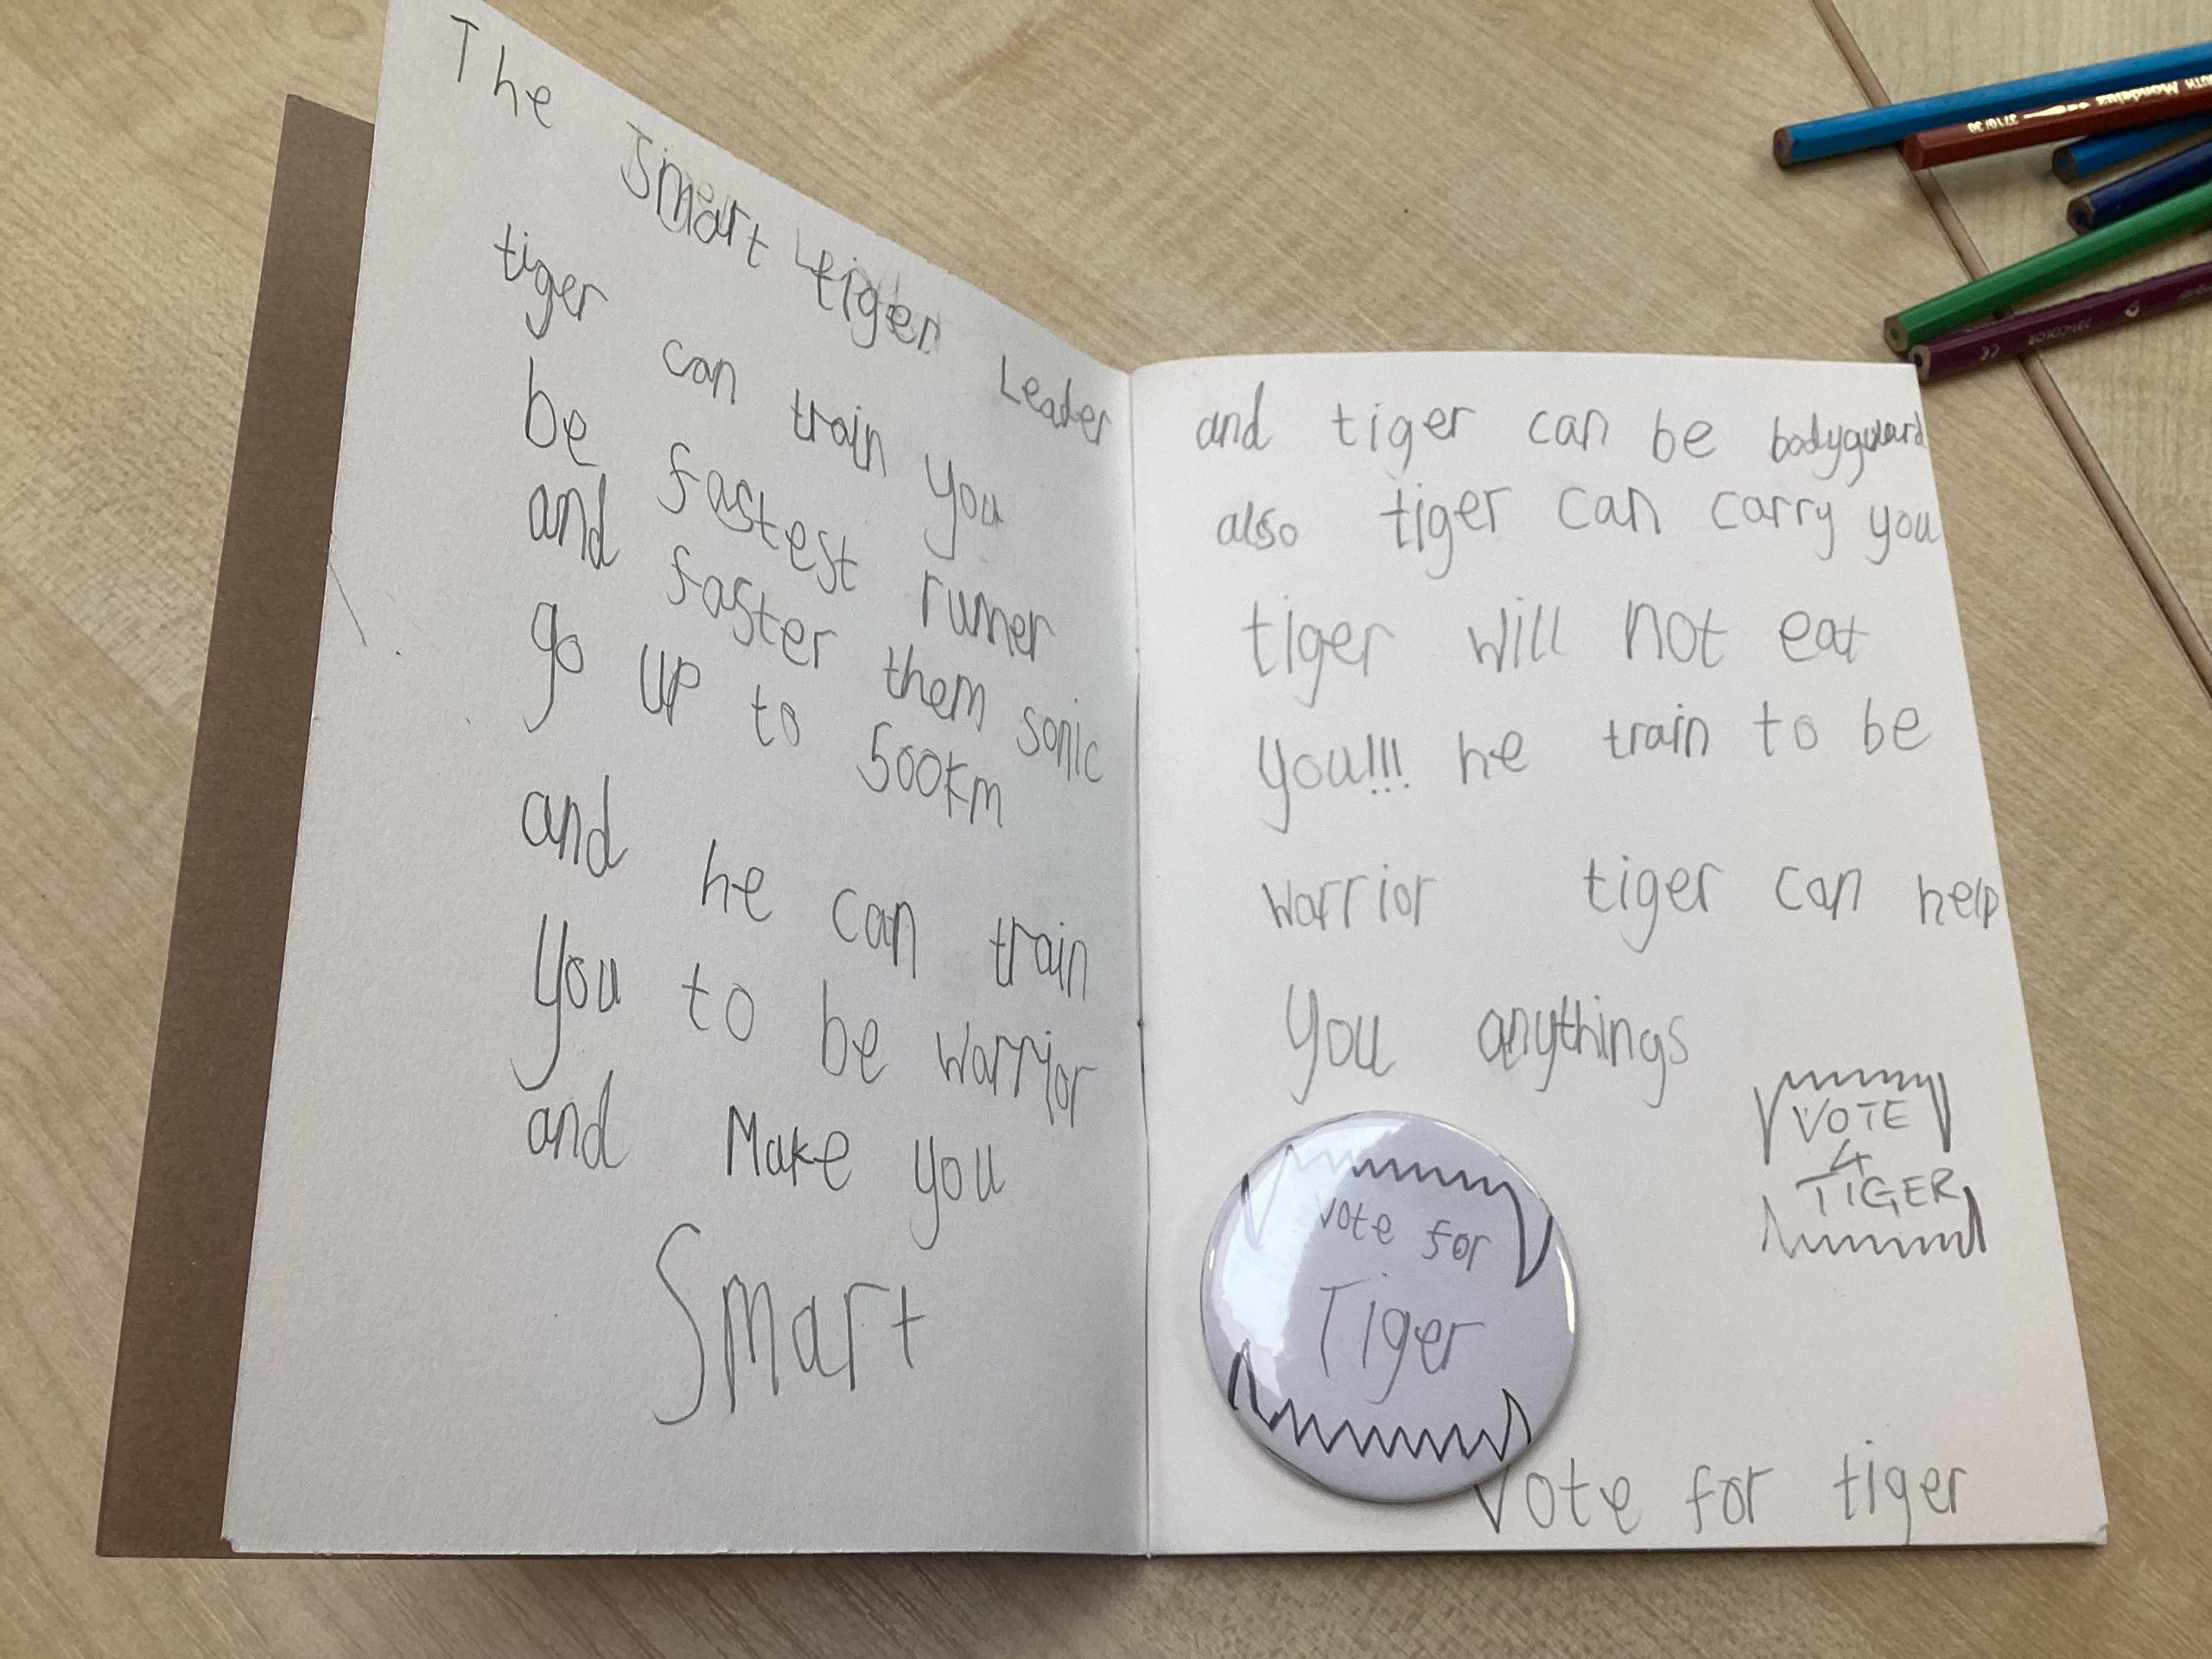 The Smart tiger Leader
tiger can train you
be fastest runner
and faster them sonic
go up to 500km
and he can train
you to be warrior
and Make you
Smart
and tiger can be bodyguard
also tiger can carry you
tiger will not eat
you!!! he train to be
warrior tiger can help
you anythings
VOTE
4
TIGER
Vote for
Tiger
Vote for tiger